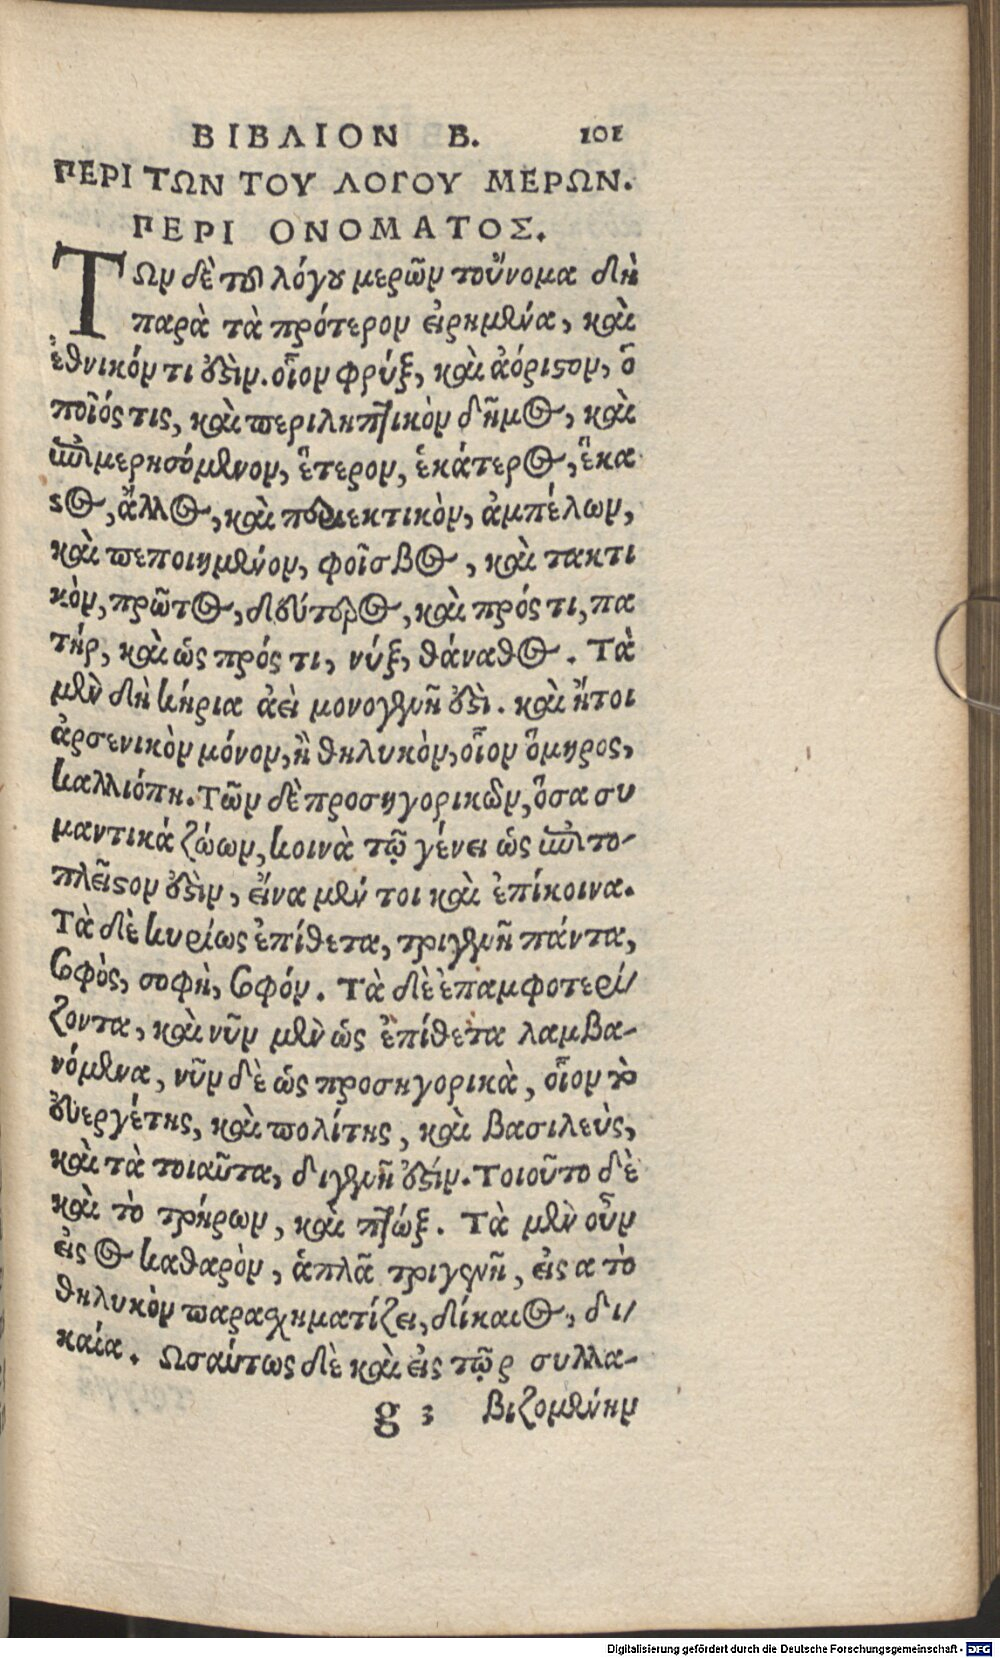 ΒΙΒΛΙΟΝ Β. 101
ΠΕΡΙ ΤΩΝ ΤΟΥ ΛΟΓΟΥ ΜΕΡΩΝ.
ΠΕΡΙ ΟΝΟΜΑΤΟΣ.
ΤΩν δὲ τοῦ λόγου μερῶν τοὔνομα δὴ
παρὰ τὰ πρότερον εἰρημένα, καὶ
ἐθνικόν τι ἐστὶν. οἷον φρύξ, καὶ ἀόριστον, ὅ
ποῖός τις, καὶ περιληπτικὸν δῆμος, καὶ
ἐπιμερησόμενον, ἕτερον, ἑκάτερος, ἕκα
στος, ἄλλος, καὶ περιεκτικὸν, ἀμπέλων,
καὶ πεποιημένον, φοῖσβος, καὶ τακτι
κὸν, πρῶτος, δεύτερος, καὶ πρός τι, πα
τήρ, καὶ ὡς πρός τι, νύξ, θάναθος. Τὰ
μὲν δὴ κήρια ἀεὶ μονογενῆ ἐστὶ. καὶ ἤτοι
ἀρσενικὸν μόνον, ἢ θηλυκὸν, οἷον ὅμηρος,
καλλιόπη. Τῶν δὲ προσηγορικῶν, ὅσα συ
μαντικά ζώων, κοινὰ τῷ γένει ὡς ἐπιτο-
πλεῖστον ἐστὶν, εἵνα μέν τοι καὶ ἐπίκοινα.
Τὰ δὲ κυρίως ἐπίθετα, τριγενῆ πάντα,
σοφὸς, σοφὴ, σοφόν. Τὰ δὲ ἐπαμφοτερί/
ζοντα, καὶ νῦν μὲν ὡς ἐπίθετα λαμβα-
νόμενα, νῦν δὲ ὡς προσηγορικὰ, οἷον τὸ
εὐεργέτης, καὶ πολίτης, καὶ βασιλεὺς,
καὶ τὰ τοιαῦτα, διγενῆ ἐστίν. Τοιοῦτο δὲ
καὶ τὸ τρήρων, καὶ πτώξ. Τὰ μὲν οὖν
εἰς ος καθαρὸν, ἁπλᾶ τριγενῆ, εἰς α τὸ
θηλυκὸν παρασχηματίζει, δίκαιος, δι/
καία. Ωσαύτως δὲ καὶ εἰς τῷ ρ συλλα-
g 3 βιζομένην
Digitalisierung gefördert durch die Deutsche Forschungsgemeinschaft - DFG